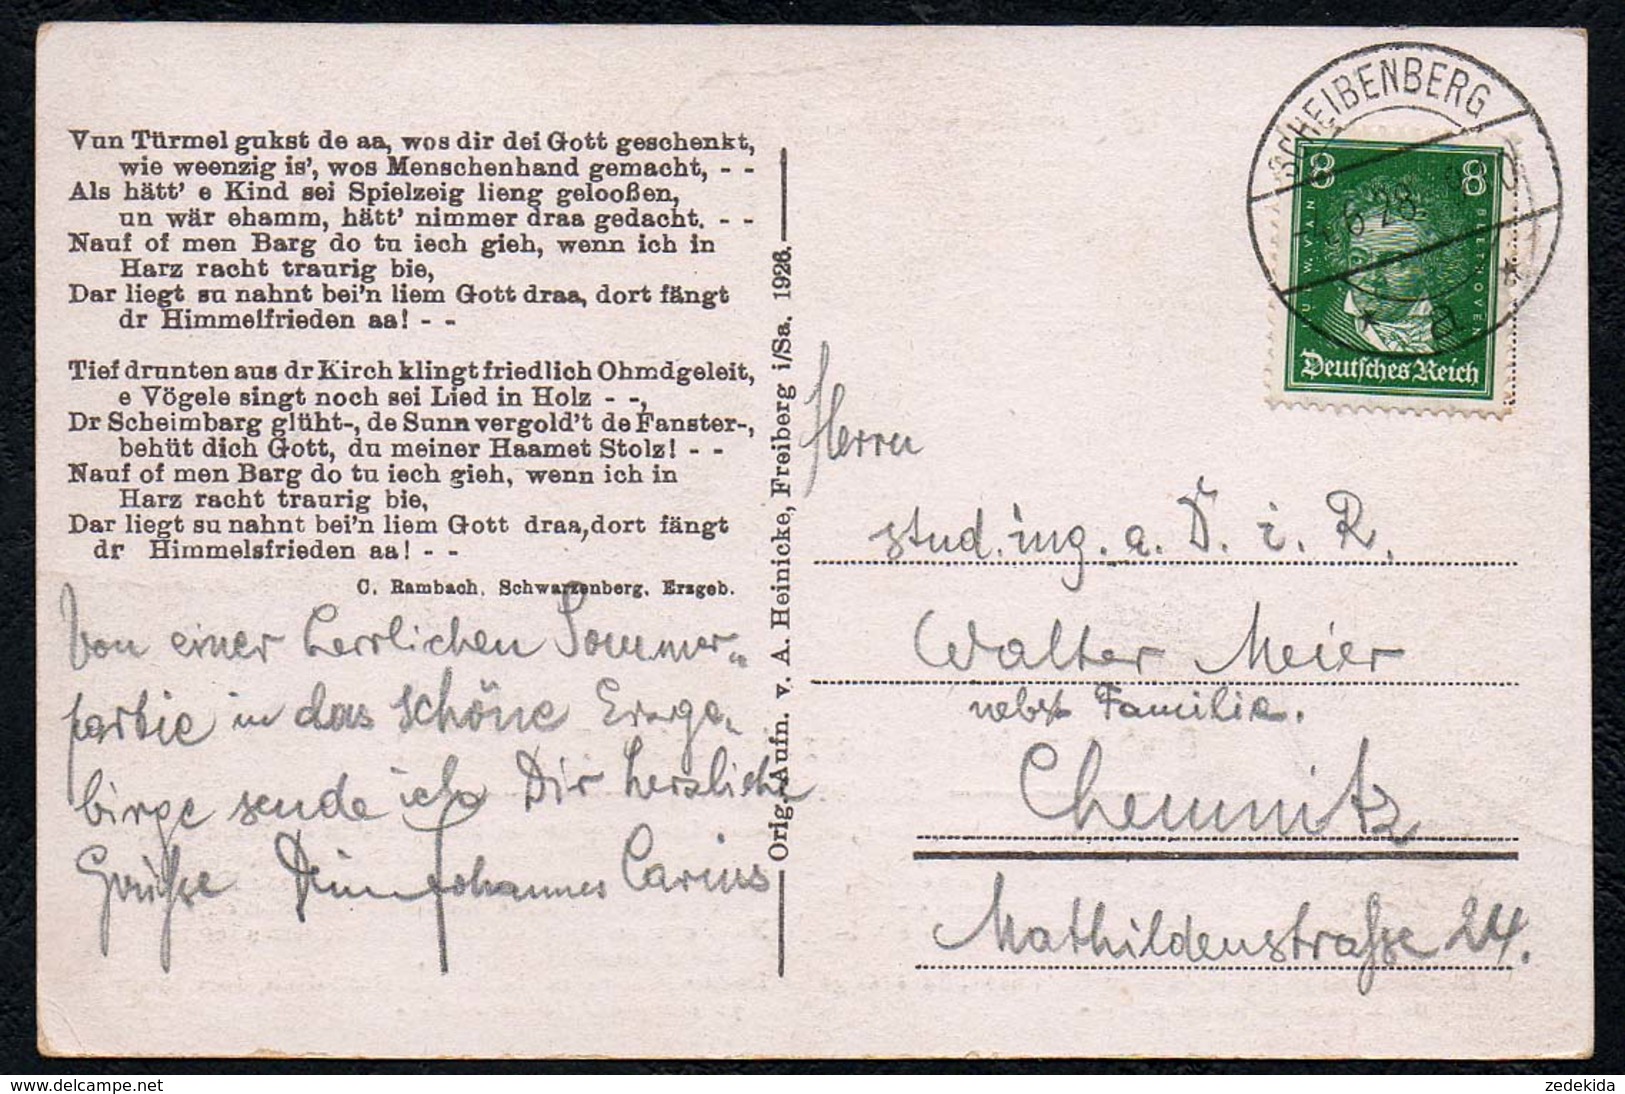 Vun Türmel gukst de aa, wos dir dei Gott geschenkt,
wie weenzig is', wos Menschenhand gemacht, - -
Als hätt' e Kind sei Spielzeig lieng gelooßen,
un wär ehamm, hätt' nimmer draa gedacht. - -
Nauf of men Barg do tu iech gieh, wenn ich in
Harz racht traurig bie,
Dar liegt su nahnt bei'n liem Gott draa, dort fängt
dr Himmelfrieden aa! - -
Tief drunten aus dr Kirch klingt friedlich Ohmdgeleit,
e Vögele singt noch sei Lied in Holz - -,
Dr Scheimbarg glüht-, de Sunn vergold't de Fanster-,
behüt dich Gott, du meiner Haamet Stolz! - -
Nauf of men Barg do tu iech gieh, wenn ich in
Harz racht traurig bie,
Dar liegt su nahnt bei'n liem Gott draa, dort fängt
dr Himmelsfrieden aa! - -
C. Rambach, Schwarzenberg, Erzgeb.
Von einer herrlichen Sommer-
partie in das schöne Erzge-
birge sende ich Dir herzliche
Grüße Dein Johannes Carius
Orig. Aufn. v. A. Heinicke, Freiberg i/Sa. 1926.
SCHEIBENBERG
6 28
a
8 8
L. W. VAN BEETHOVEN
Deutsches Reich
Herrn
stud. ing. a. D. i. R.
Walter Meier
nebst Familie.
Chemnitz
Mathildenstraße 24.
www.delcampe.net
zedekida